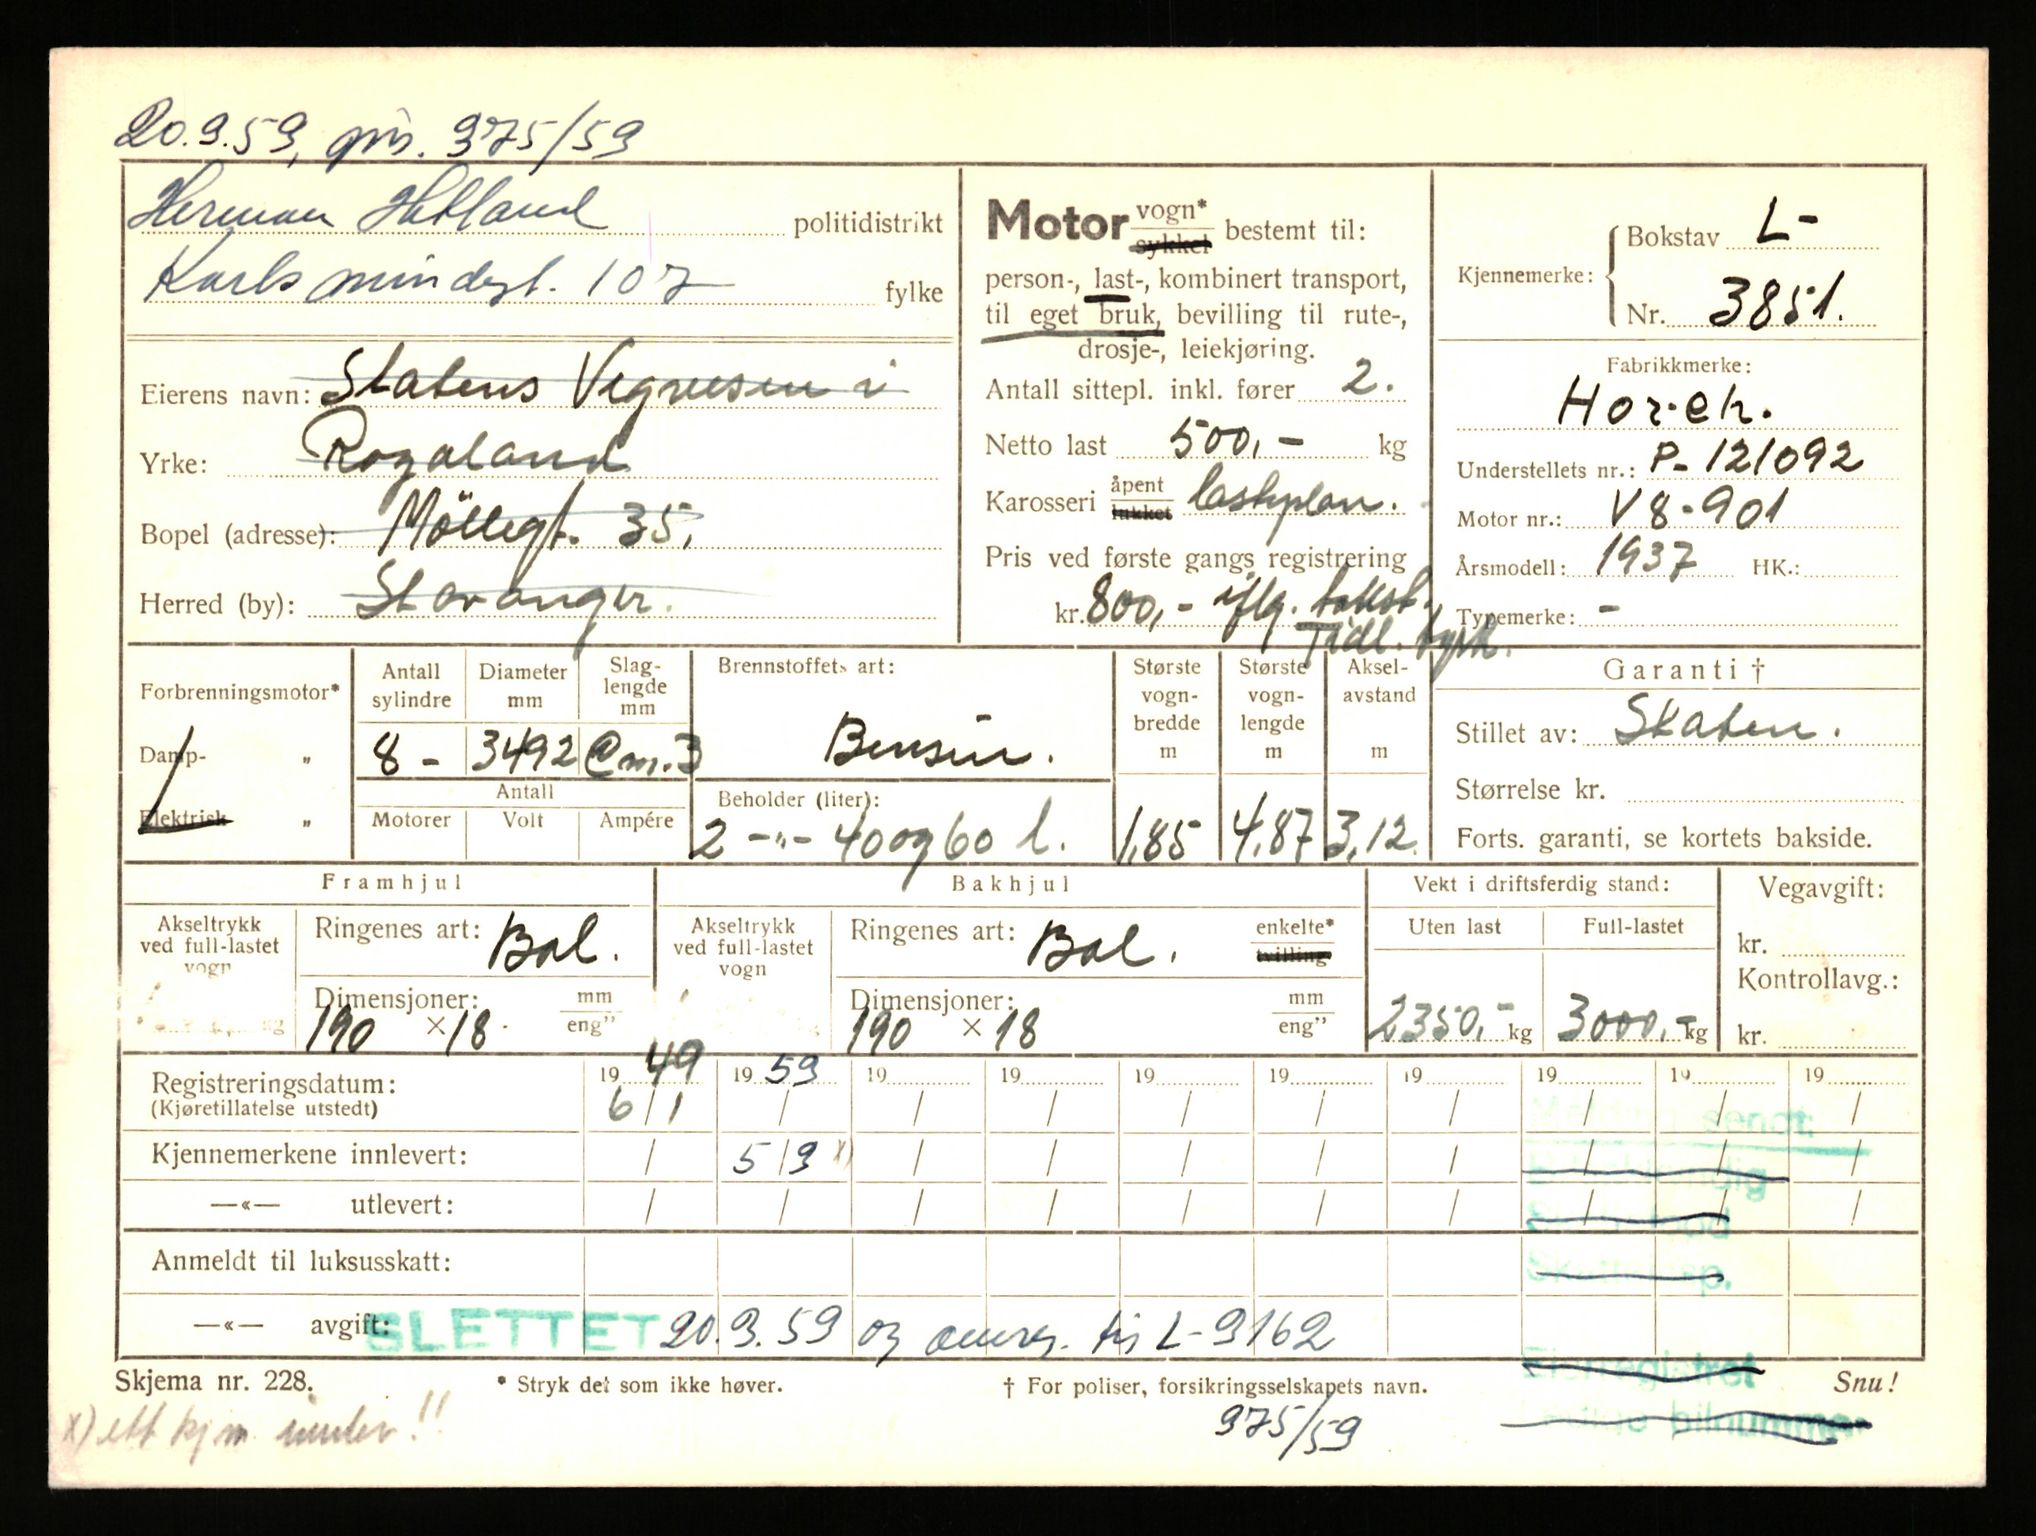 20.9.59, gjs. 975/59
Herman Hetland politidistrikt
Karlsmindegt. 107 fylke
Eierens navn: Statens Vegvesen i
Yrke: Rogaland
Bopel (adresse): Möllegt. 35,
Herred (by): Stavanger.
Motor vogn* sykkel bestemt til:
person-, last-, kombinert transport,
til eget bruk, bevilling til rute-,
drosje-, leiekjøring.
Antall sittepl. inkl. fører 2.
Netto last 500,- kg
Karosseri åpent lukket lasteplan.
Pris ved første gangs registrering
kr. 800,- iflg. takst.
Tidl. tysk.
Kjennemerke: Bokstav L-
Nr. 3851.
Fabrikkmerke:
Horch.
Understellets nr.: P-121092
Motor nr.: V8-901
Årsmodell: 1937 HK.:
Typemerke: -
Forbrenningsmotor*
Damp- "
Elektrisk "
Antall sylindre Diameter mm Slag-lengde mm
8 - 3492 Cm.3
Antall
Motorer Volt Ampére
Brennstoffets art:
Bensin.
Beholder (liter):
2 -"- 40 og 60 l.
Største vogn-bredde m Største vogn-lengde m Aksel-avstand m
1,85 4,87 3,12.
Garanti †
Stillet av: Staten.
Størrelse kr.
Forts. garanti, se kortets bakside.
Framhjul
Akseltrykk ved full-lastet vogn
Ringenes art: Bal.
Dimensjoner: mm eng"
190 × 18
Bakhjul
Akseltrykk ved full-lastet vogn
Ringenes art: Bal. enkelte* tvilling
Dimensjoner: mm eng"
190 × 18
Vekt i driftsferdig stand:
Uten last Full-lastet
2350,- kg 3000,- kg
Vegavgift:
kr.
Kontrollavg.:
kr.
Registreringsdatum: 19 49 19 59 19 19 19 19 19 19 19 19
(Kjøretillatelse utstedt) 6/1 / / / / / / / / /
Kjennemerkene innlevert: / 5/9 x) / / / / / / / /
—«— utlevert: / / / / / / / / / /
Anmeldt til luksusskatt:
—«— avgift: SLETTET 20.9.59 og omreg. til L-9162
Eierregistret
bilnummer
Skjema nr. 228. * Stryk det som ikke høver. † For poliser, forsikringsselskapets navn. Snu!
x) ett kjm. 975/59